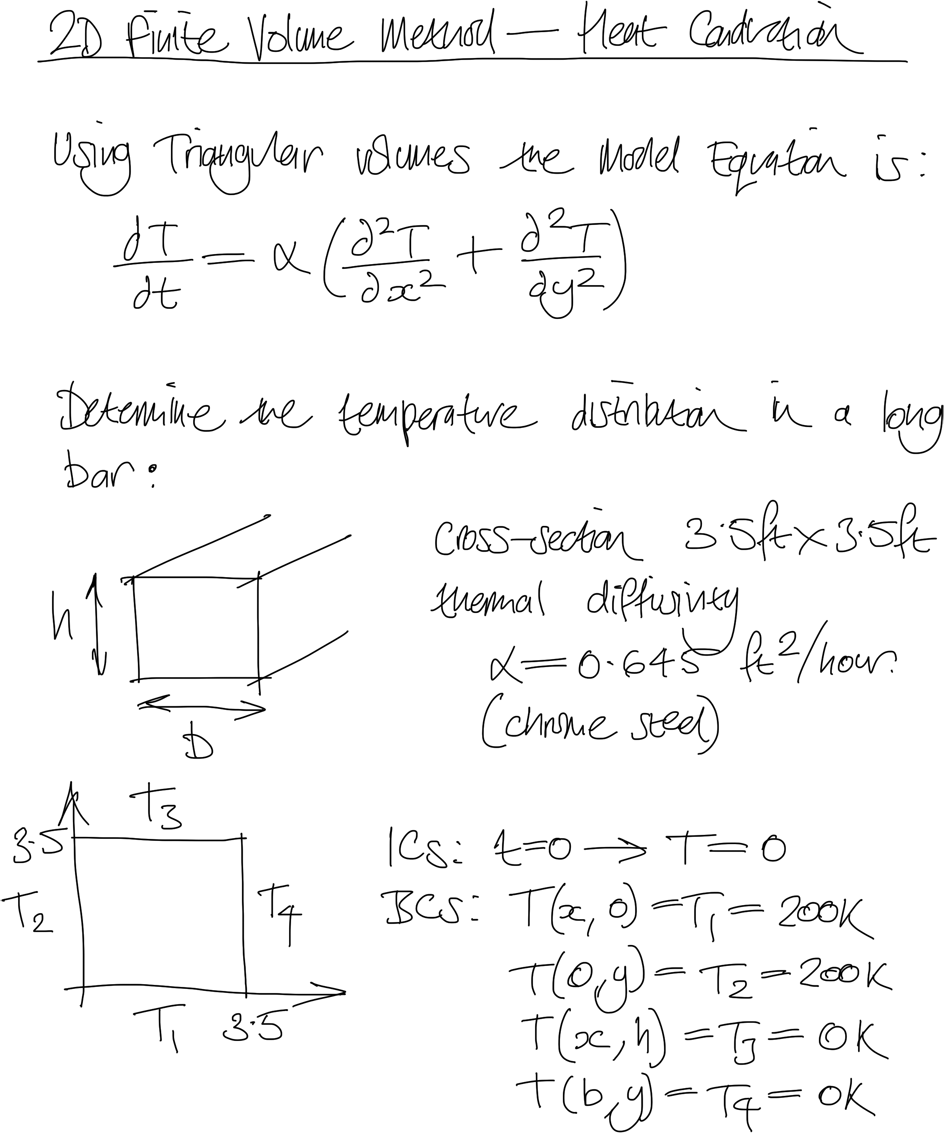 2D Finite Volume Method — Heat Conduction
Using Triangular volumes the Model Equation is:
∂T/∂t = α (∂²T/∂x² + ∂²T/∂y²)
Determine the temperature distribution in a long
bar:
cross-section 3.5ft × 3.5ft
thermal diffusivity
α = 0.645 ft²/hour
(chrome steel)
h
D
T3
3.5
T2
T4
T1 3.5
ICs: t=0 → T = 0
BCs: T(x, 0) = T1 = 200K
T(0, y) = T2 = 200K
T(x, h) = T3 = 0K
T(b, y) = T4 = 0K